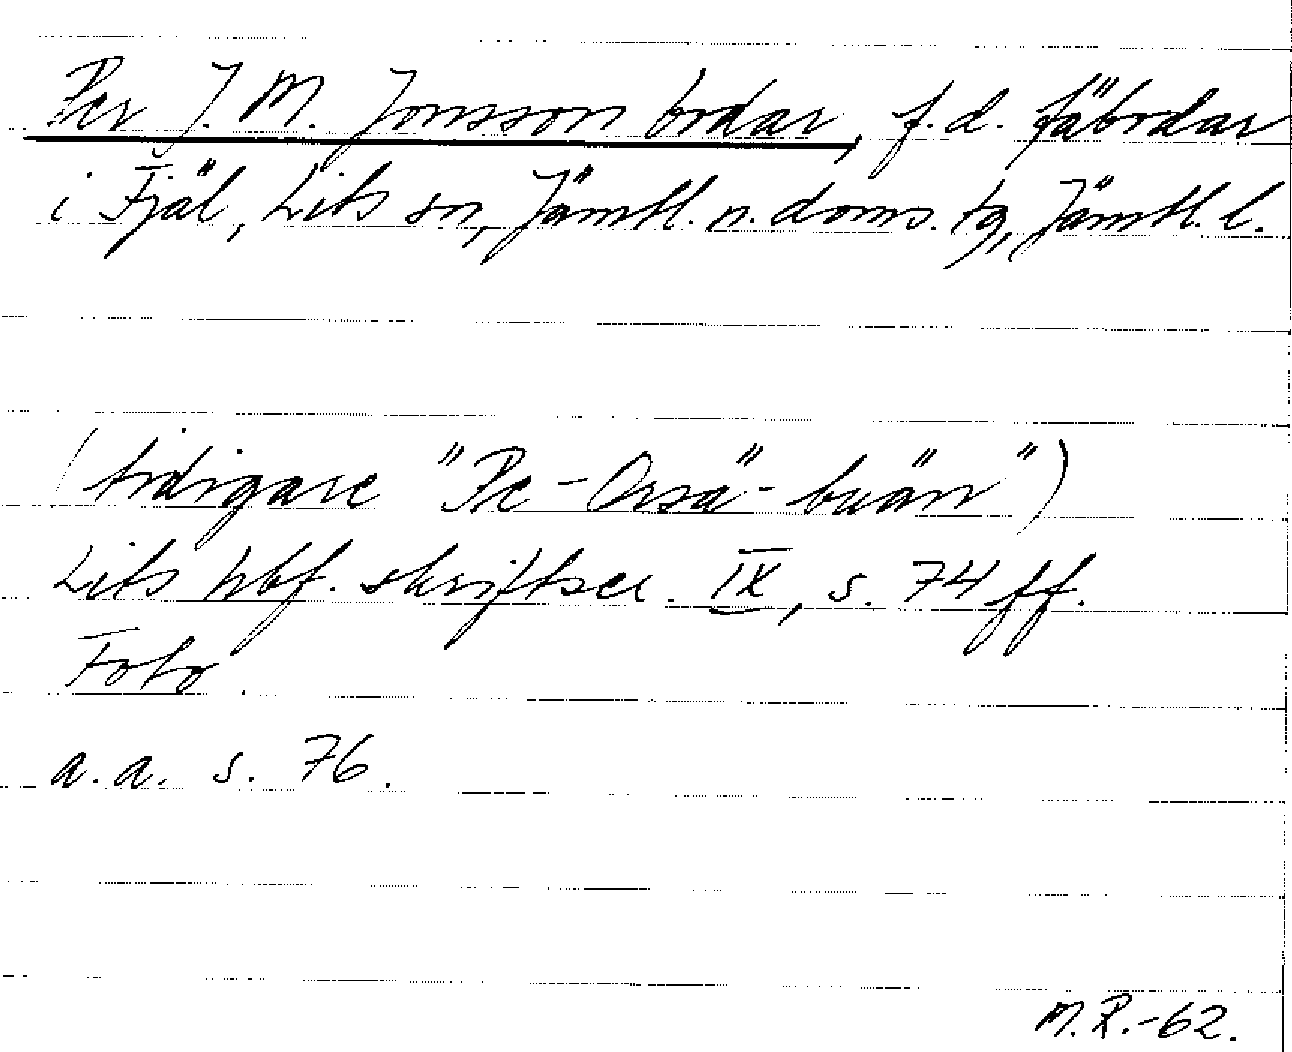 Per J. M. Jonsson bodar, f.d. fäbodar
i Fjäl, Lits sn, Jämtl. n. doms. tg, Jämtl. l.
(tidigare "Pe-Orsä-buän")
Lits hbf. skriftser. IX, s. 74 ff.
Foto.
a.a. s. 76.
M.R.-62.